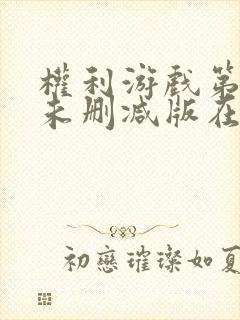 權利游戲第
未删减版在
初戀璀璨如夏